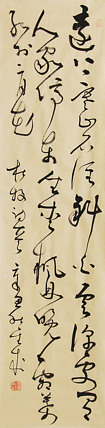 遠上寒山石径斜白雲深處有
人家停車坐愛楓林晚霜葉
紅於二月花 杜牧詩